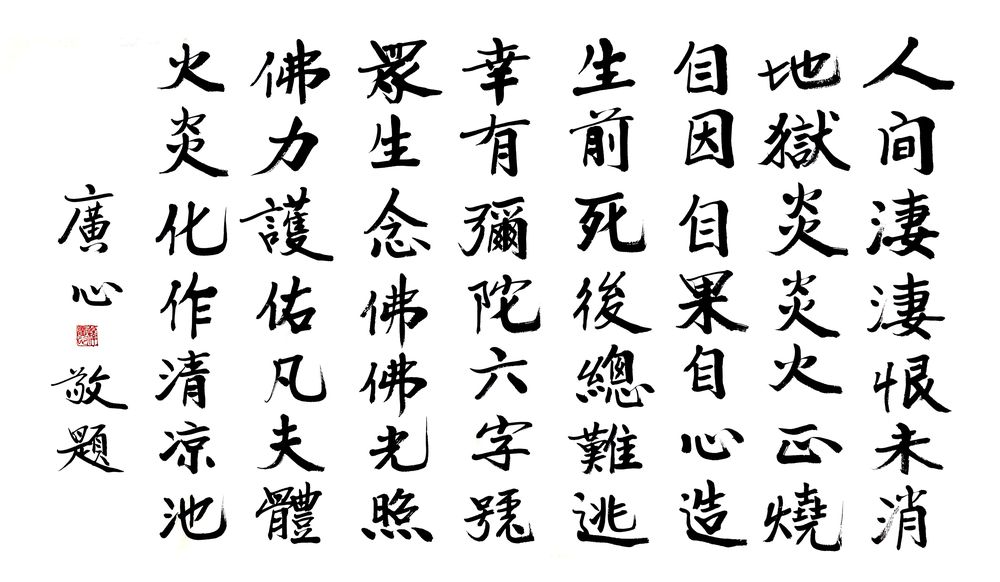 人间淒淒恨未消
地獄炎炎火正燒
自因自果自心造
生前死後總難逃
幸有彌陀六字號
眾生念佛佛光照
佛力護佑凡夫體
火炎化作清凉池
廣心敬題